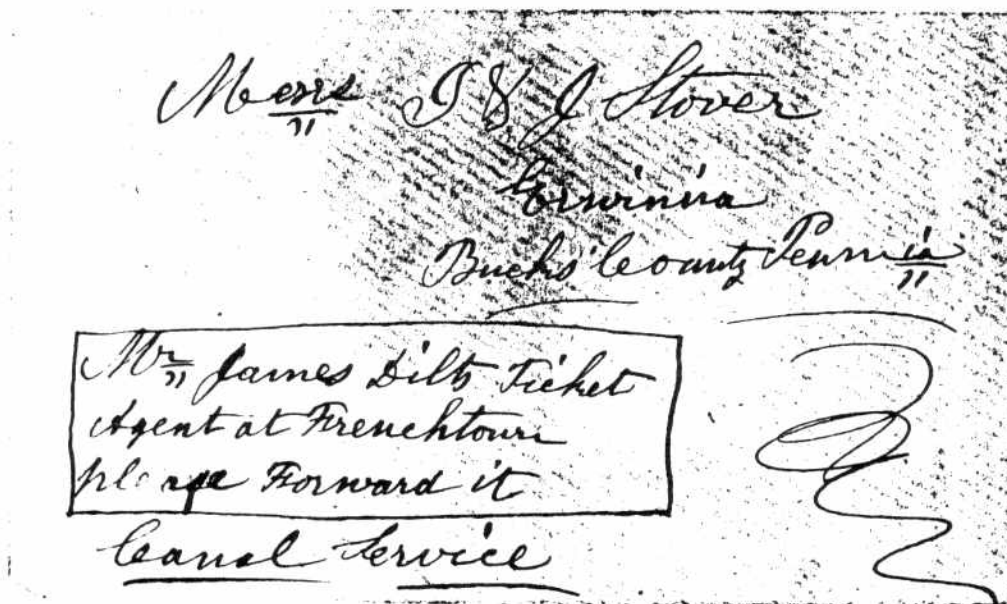 Messrs J & J Stover
Erwinna
Bucks County Penn ia
Mr James Dilts Ticket
Agent at Frenchtown
please Forward it
Canal Service